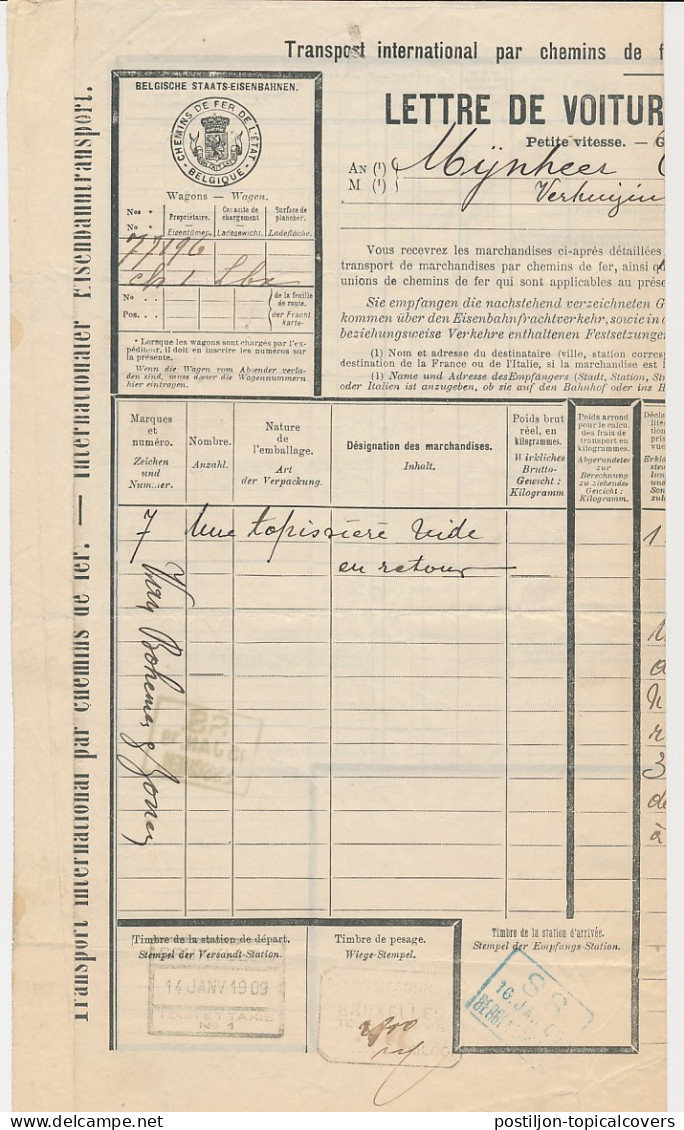 Transport international par chemins de f
Transport international par chemins de fer. — Internationaler Eisenbahntransport.
BELGISCHE STAATS-EISENBAHNEN.
CHEMINS DE FER DE L'ÉTAT
BELGIQUE
Wagons — Wagen.
Nos
No
Propriétaire.
Eigentümer.
Capacité de chargement
Ladegewicht.
Surface de plancher.
Ladefläche.
77196
No . . .
Pos. . .
de la feuille de route.
der Fracht karte.
* Lorsque les wagons sont chargés par l'ex-
péditeur, il doit en inscrire les numeros sur
la présente.
Wenn die Wagen vom Absender verla-
den sind, muss dieser die Wagennummern
hier eintragen.
LETTRE DE VOITUR
Petite vitesse. — G
AN (1)
M (1)
Mijnheer
Verhuizin
Vous recevrez les marchandises ci-après détaillées
transport de marchandises par chemins de fer, ainsi q
unions de chemins de fer qui sont applicables au prése
Sie empfangen die nachstehend verzeichneten G
kommen über den Eisenbahnfrachtverkehr, sowie in d
beziehungsweise Verkehre enthaltenen Festsetzungen
(1) Nom et adresse du destinataire (ville, station corres
destination de la France ou de l'Italie, si la marchandise est l
(1) Name und Adresse des Empfängers (Stadt, Station, Str
oder Italien ist anzugeben, ob sie auf den Bahnhof oder ins H
Marques
et
numéro.
Zeichen
und
Nummer
Nombre.
Anzahl.
Nature
de l'emballage.
Art
der Verpackung.
Désignation des marchandises.
Inhalt.
Poids brut
réel, en
kilogrammes.
Wirkliches
Brutto-
Gewicht :
Kilogramm
Poids arrond
pour le calcu.
des frais de
transport en
kilogrammes.
Abgerundetes
zur
Berechnung
zu ziehendes
Gewicht :
Kilogramm.
7 Une tapissière vide
en retour
Timbre de la station de départ.
Stempel der Versandt-Station.
14 JANV 1909
TOUR ET TAXIS
No 1
Timbre de pesage.
Wiege-Stempel.
BRUXELLES
Timbre de la station d'arrivée.
Stempel der Empfangs-Station.
S S
16 JAN
postiljon-topicalcovers
postiljon-topicalcovers